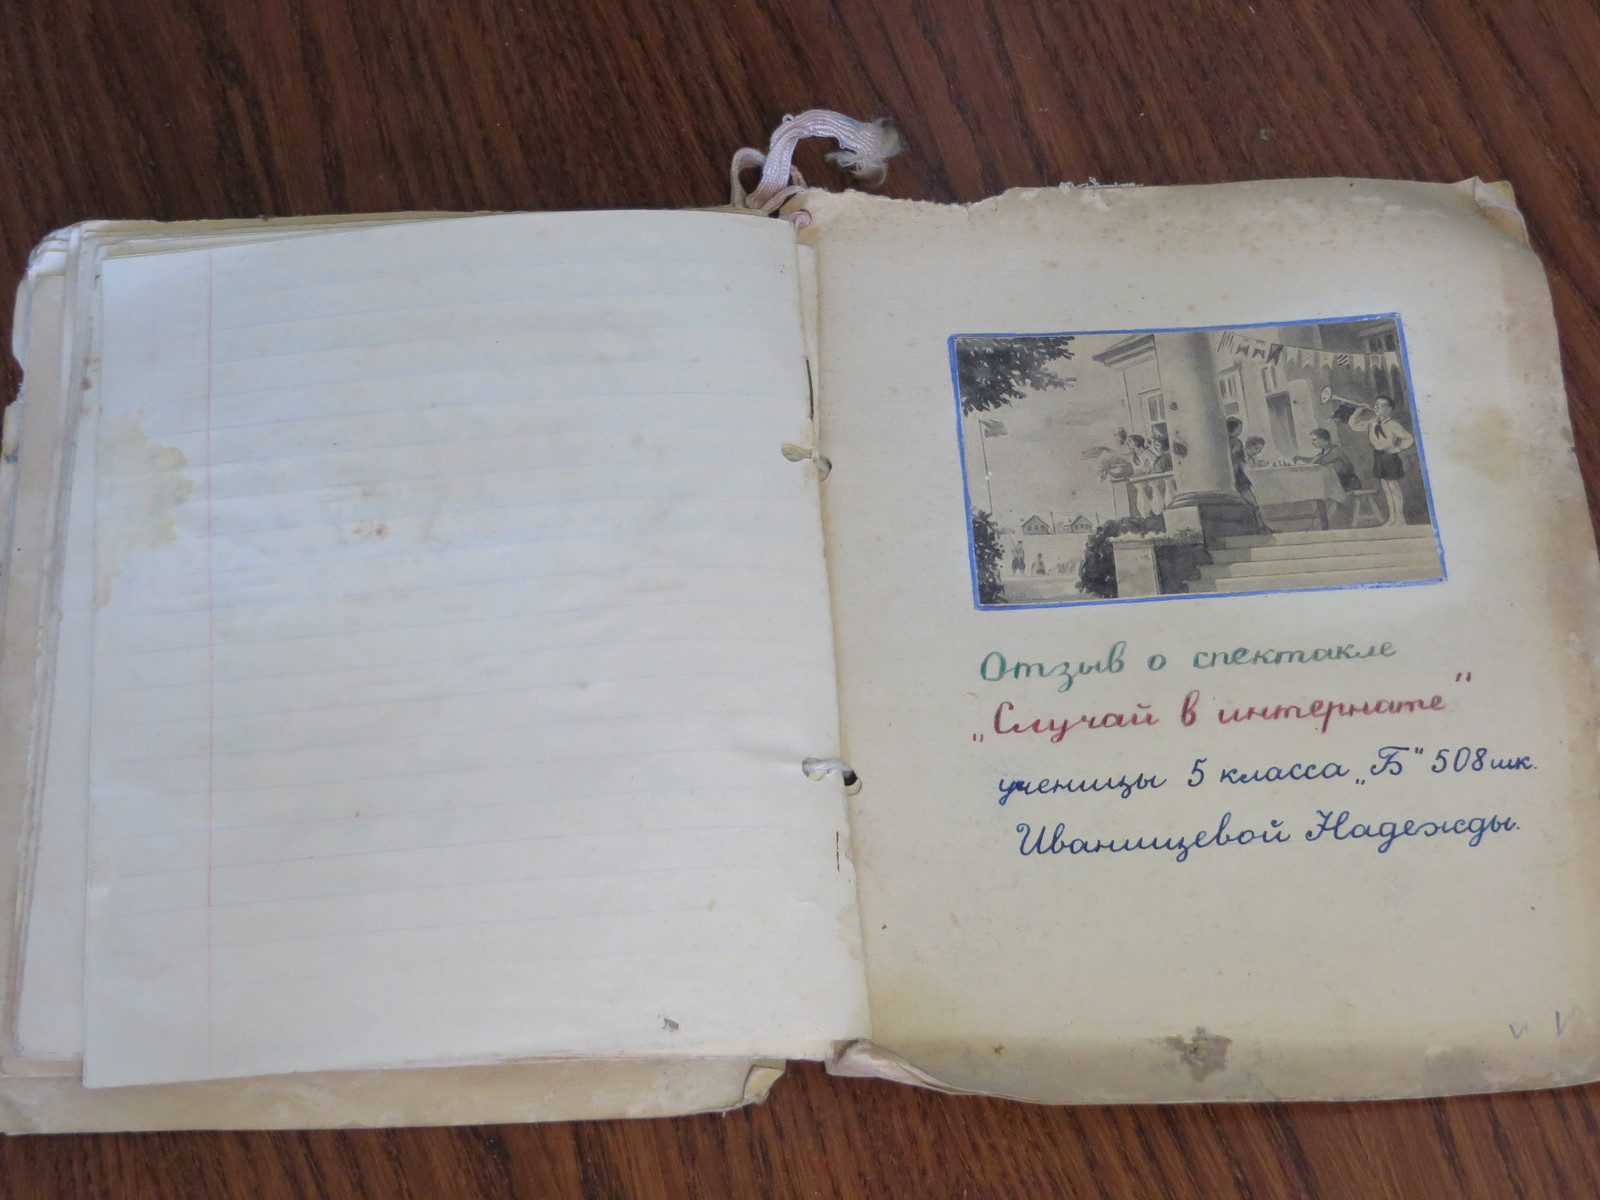 Отзыв о спектакле
„Случай в интернате"
ученицы 5 класса „Б" 508 шк.
Иванищевой Надежды.